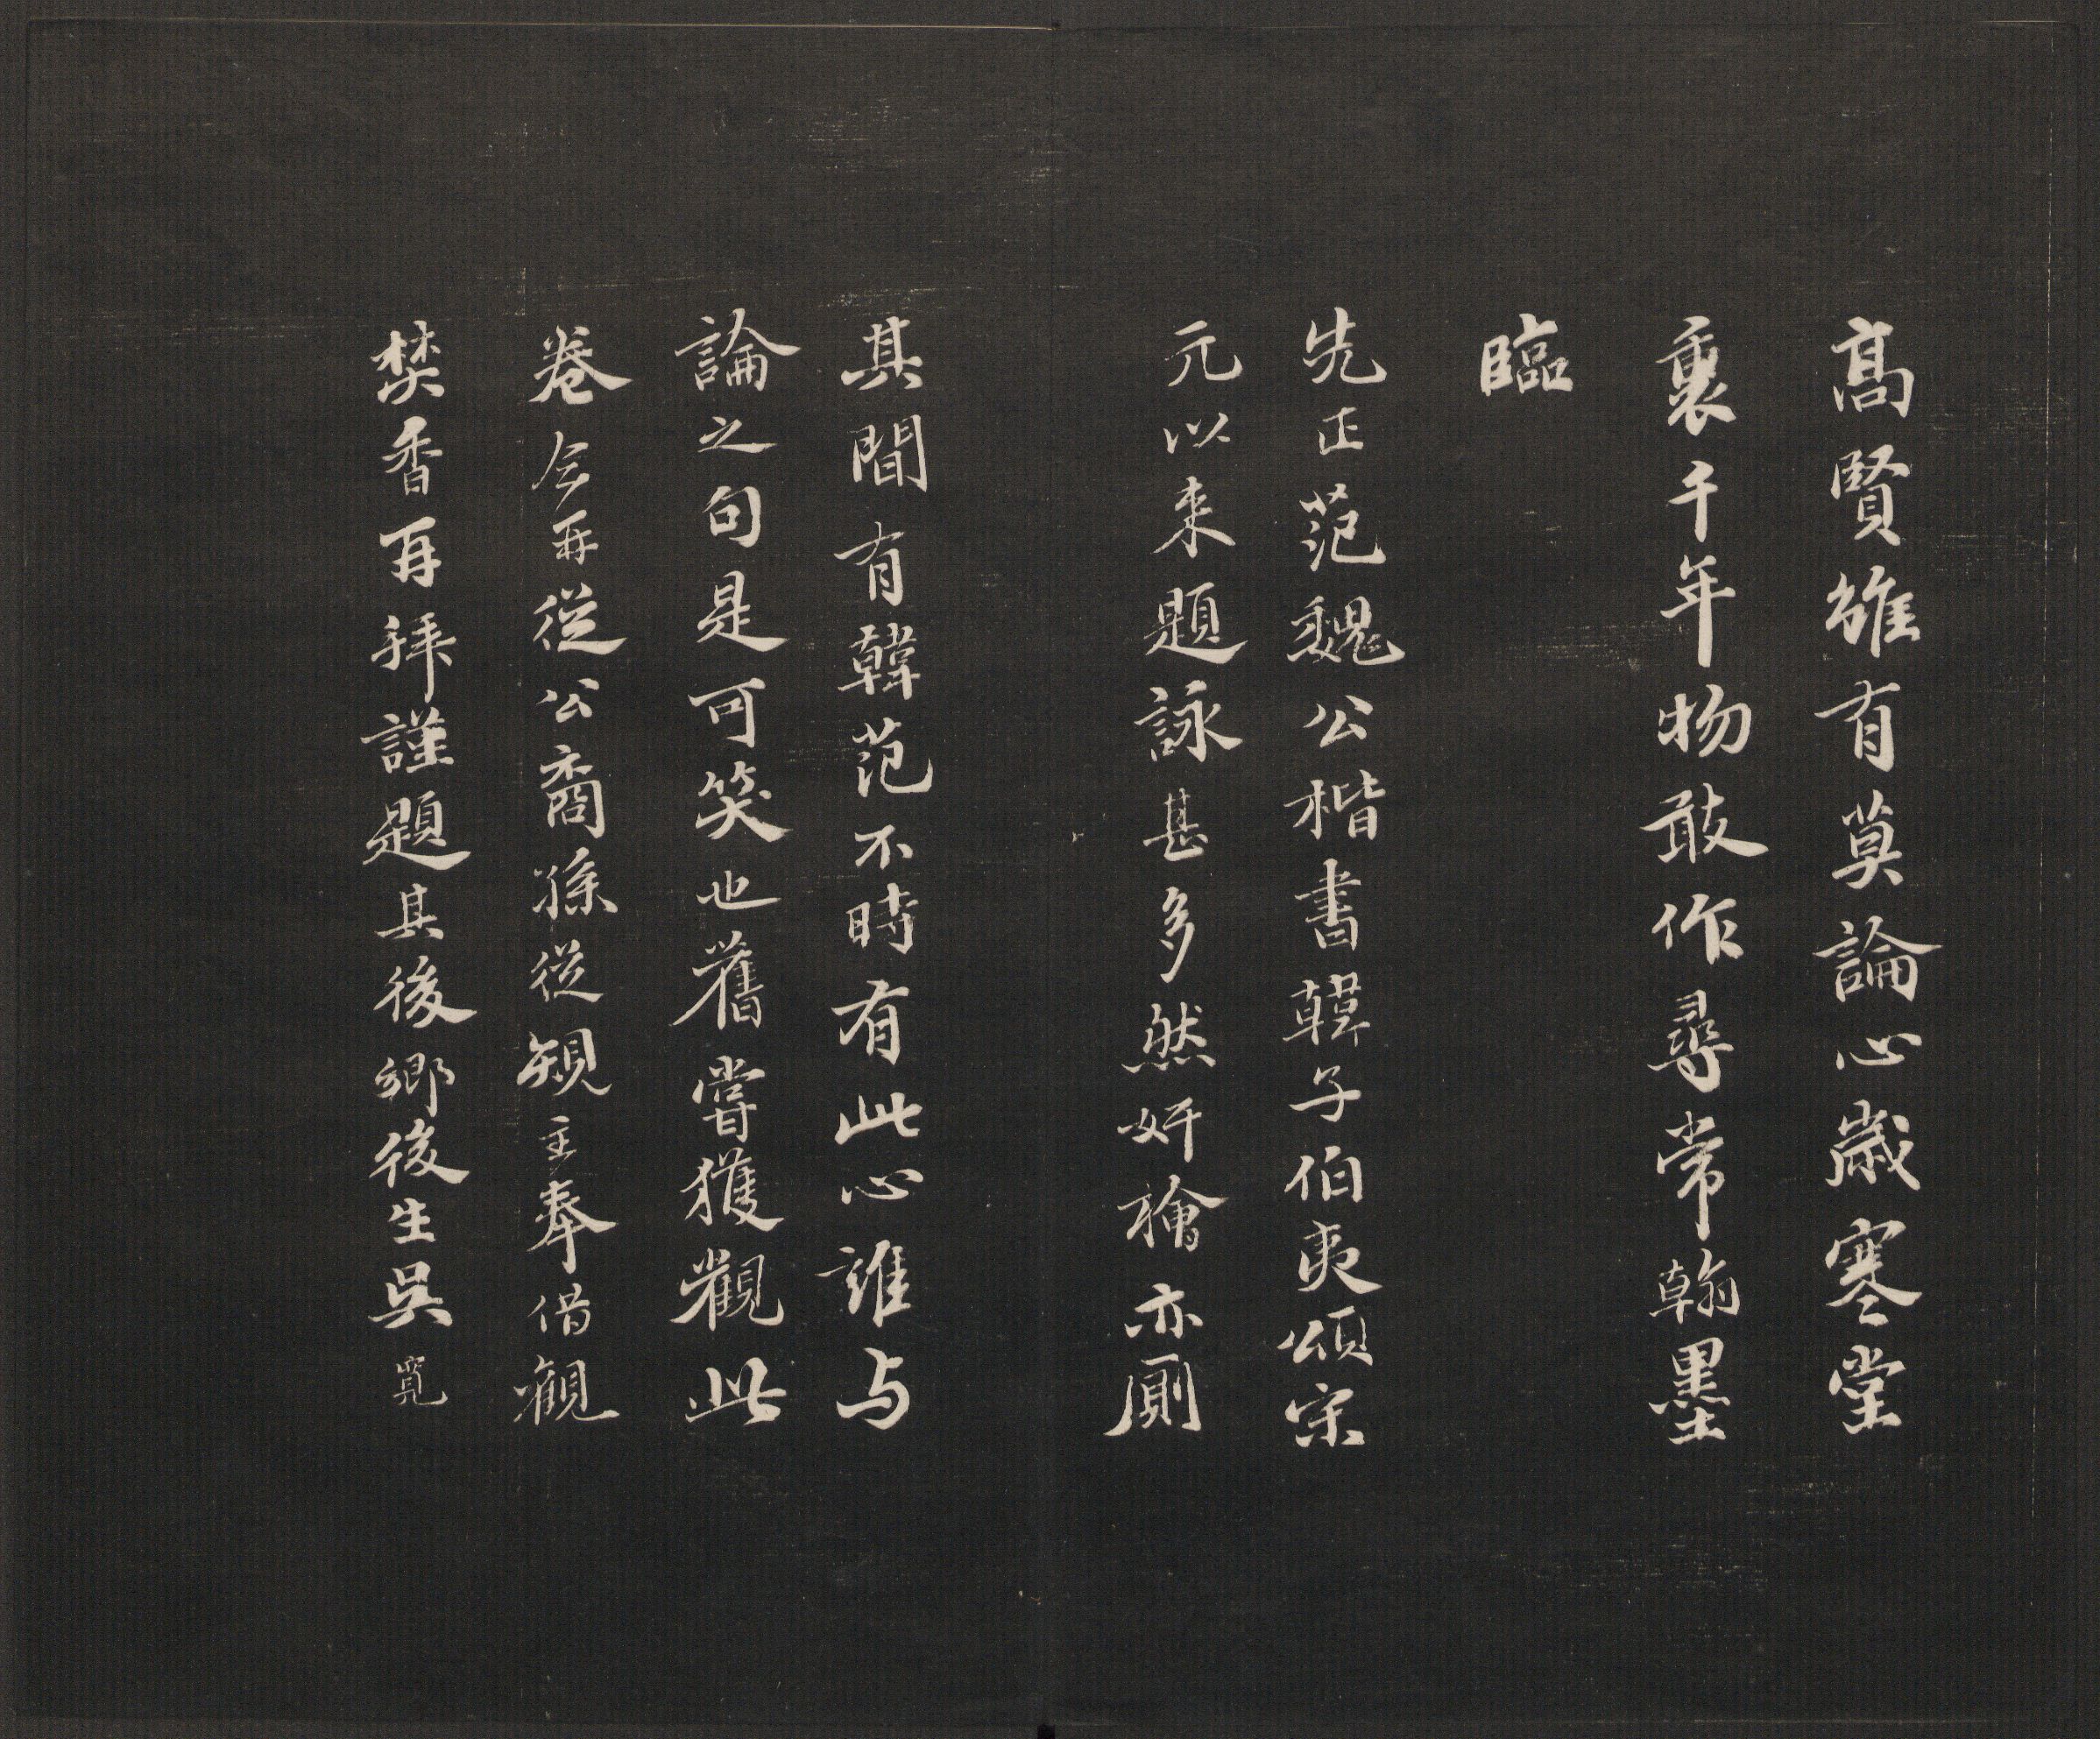 高賢雖有莫論心歲寒堂
裏千年物敢作尋常翰墨
臨
先正范魏公楷書韓子伯夷頌宋
元以来題詠甚多然奸檜亦厠
其間有韓范不時有此心誰与
論之句是可笑也舊嘗獲觀此
卷今再從公裔孫從規主奉借觀
焚香再拜謹題其後鄉後生吳寬